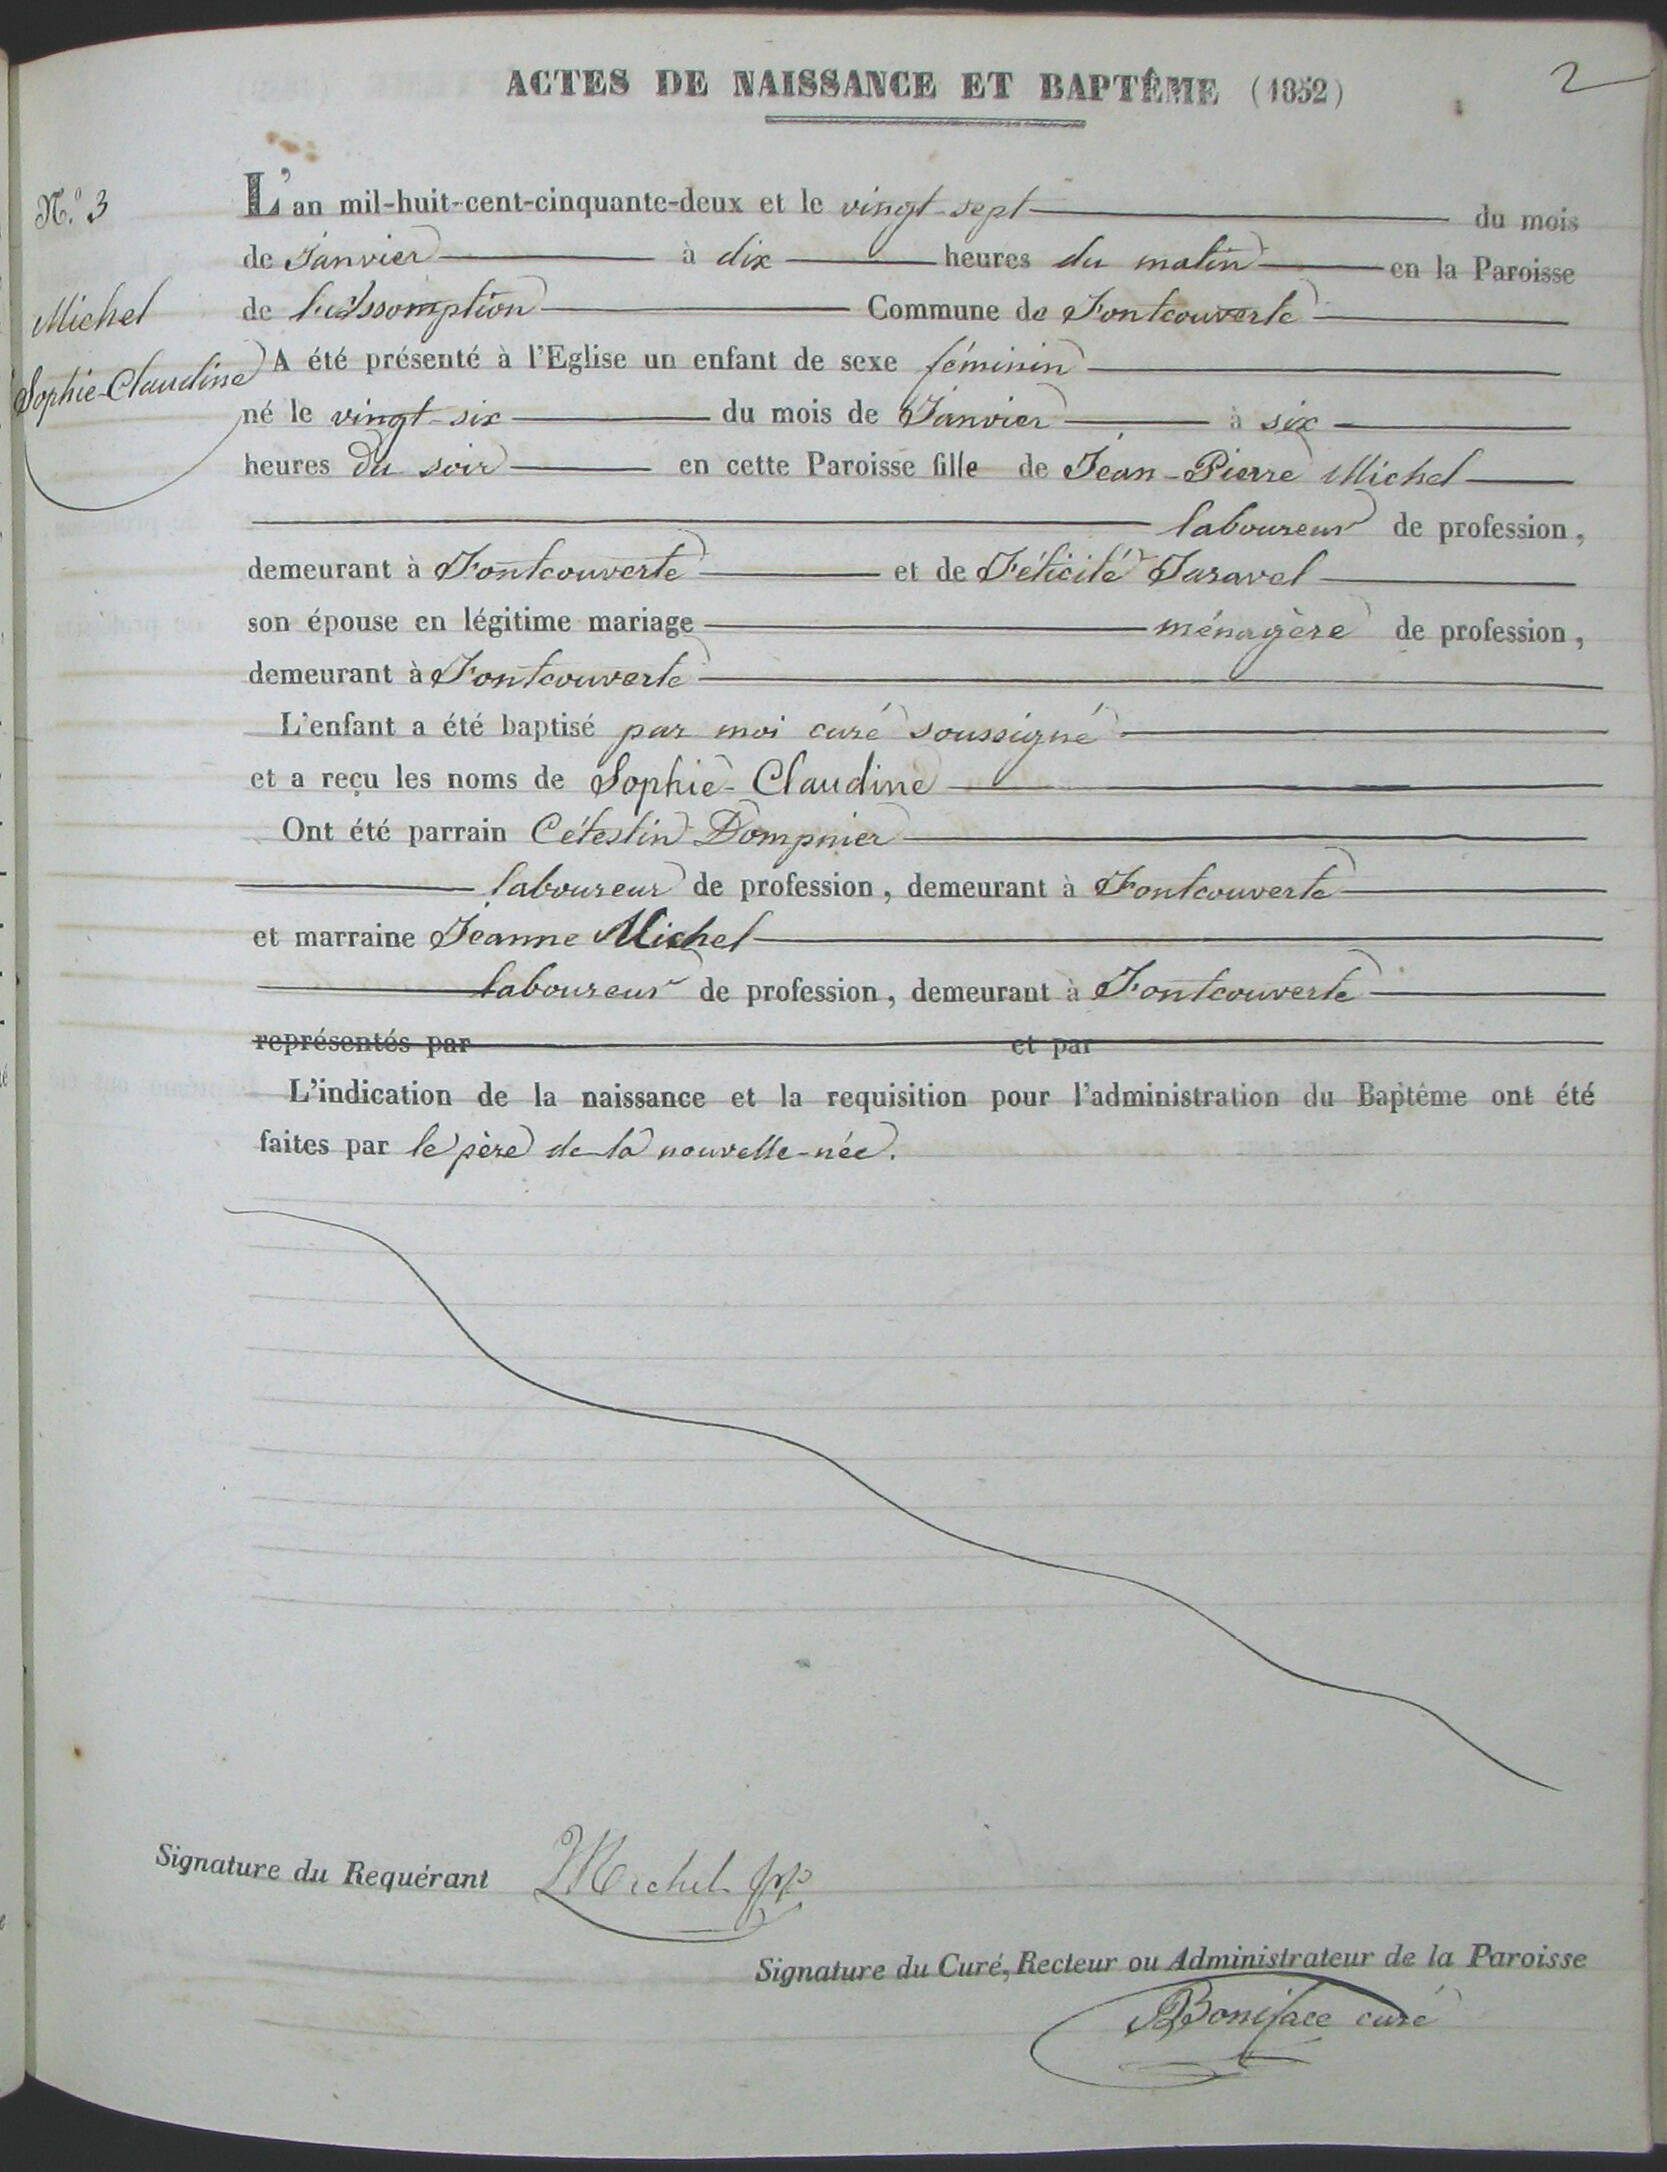 ACTES DE NAISSANCE ET BAPTÊME (1852)
2
N.o 3
Michel
Sophie-Claudine
L'an mil-huit-cent-cinquante-deux et le vingt-sept du mois
de Janvier à dix heures du matin en la Paroisse
de l'assomption Commune de Fontcouverte
A été présenté à l'Eglise un enfant de sexe féminin
né le vingt-six du mois de Janvier à six
heures du soir en cette Paroisse fille de Jean-Pierre Michel
laboureur de profession,
demeurant à Fontcouverte et de Félicité Taravel
son épouse en légitime mariage ménagère de profession,
demeurant à Fontcouverte
L'enfant a été baptisé par moi curé soussigné
et a reçu les noms de Sophie-Claudine
Ont été parrain Célestin Dompnier
laboureur de profession, demeurant à Fontcouverte
et marraine Jeanne Michel
laboureur de profession, demeurant à Fontcouverte
représentés par et par
L'indication de la naissance et la requisition pour l'administration du Baptême ont été
faites par le père de la nouvelle-née.
Signature du Requérant Michel
Signature du Curé, Recteur ou Administrateur de la Paroisse
Boniface curé